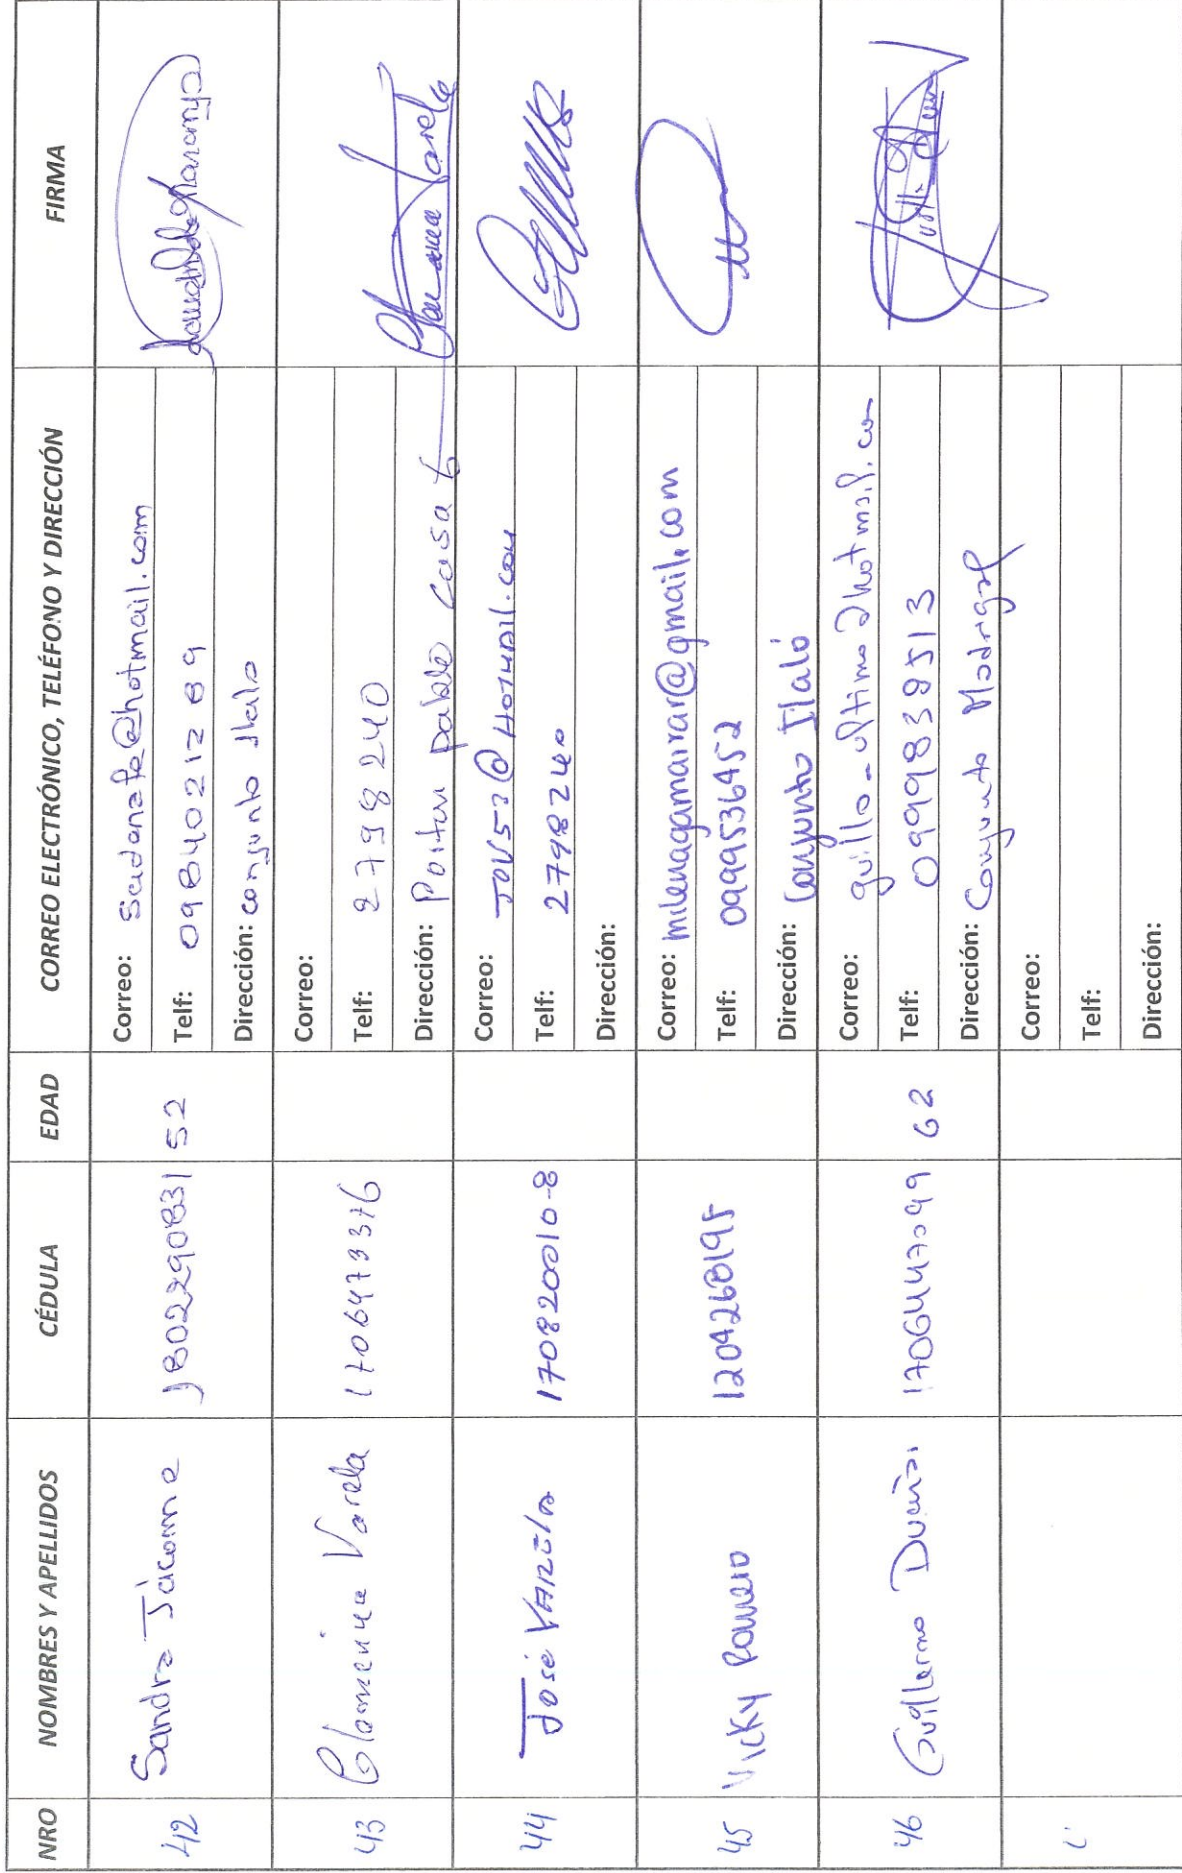 NRO NOMBRES Y APELLIDOS CÉDULA EDAD CORREO ELECTRÓNICO, TELÉFONO Y DIRECCIÓN FIRMA
42 Sandra Jácome 1802290831 52
Correo: @hotmail.com
Telf: 0984021289
Dirección: conjunto Ilalo
43 Varela 1706473376
Correo:
Telf: 2798240
Dirección: casa 6
Varela
44 José Varela 170820010-8
Correo: JOV53@HOTMAIL.COM
Telf: 2798240
Dirección:
45 Vicky Romero 1204268195
Correo: milenagamairar@gmail.com
Telf: 0999536452
Dirección: Conjunto Ilaló
46 Guillermo Dueñas 1706447099 62
Correo: guillo_ultimo@hotmail.com
Telf: 0999839513
Dirección: Conjunto Madrigal
Correo:
Telf:
Dirección: